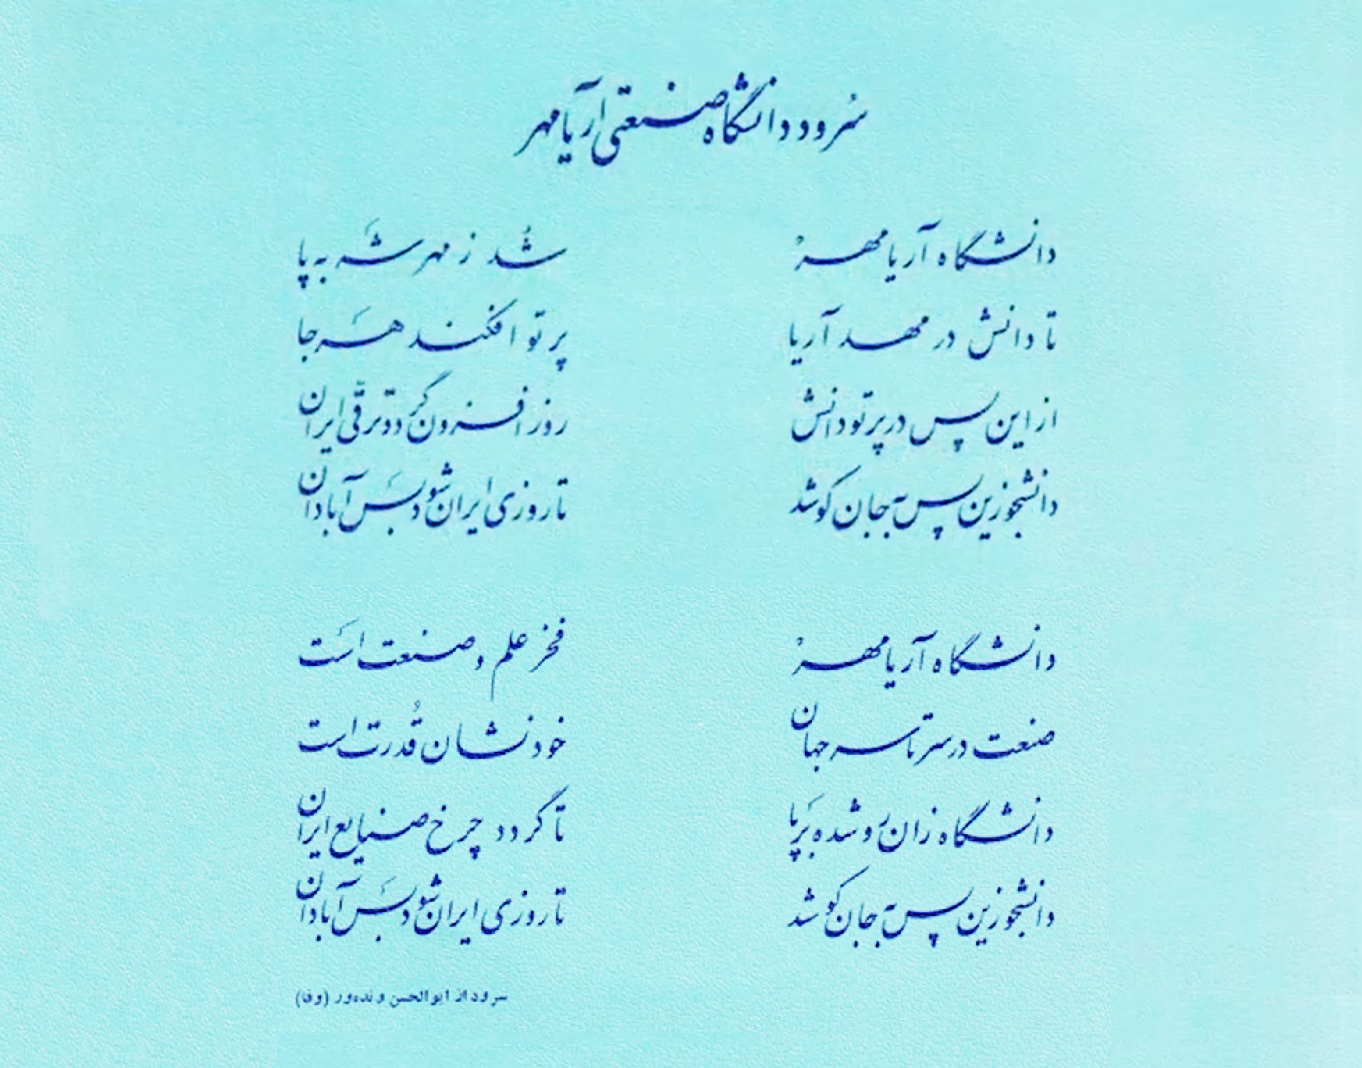 سرود دانشگاه صنعتی آریامهر
دانشگاه آریامهرْ شُد ز مهر شَه به پا
تا دانش در مهد آریا پرتو افکند هَر جا
از این پس در پرتو دانش روز افزون گردد ترقّی ایران
دانشجو زین پس به جان کوشد تا روزی ایران شود بَس آبادان
دانشگاه آریامهرْ فخر علم و صنعت اَست
صنعت در سرتاسر جهان خود نشان قُدرت است
دانشگاه زان رو شده بَرپا تا گردد چرخ صنایع ایران
دانشجو زین پس به جان کوشد تا روزی ایران شود بَس آبادان
سرود از ابوالحسن وندهور (وفا)